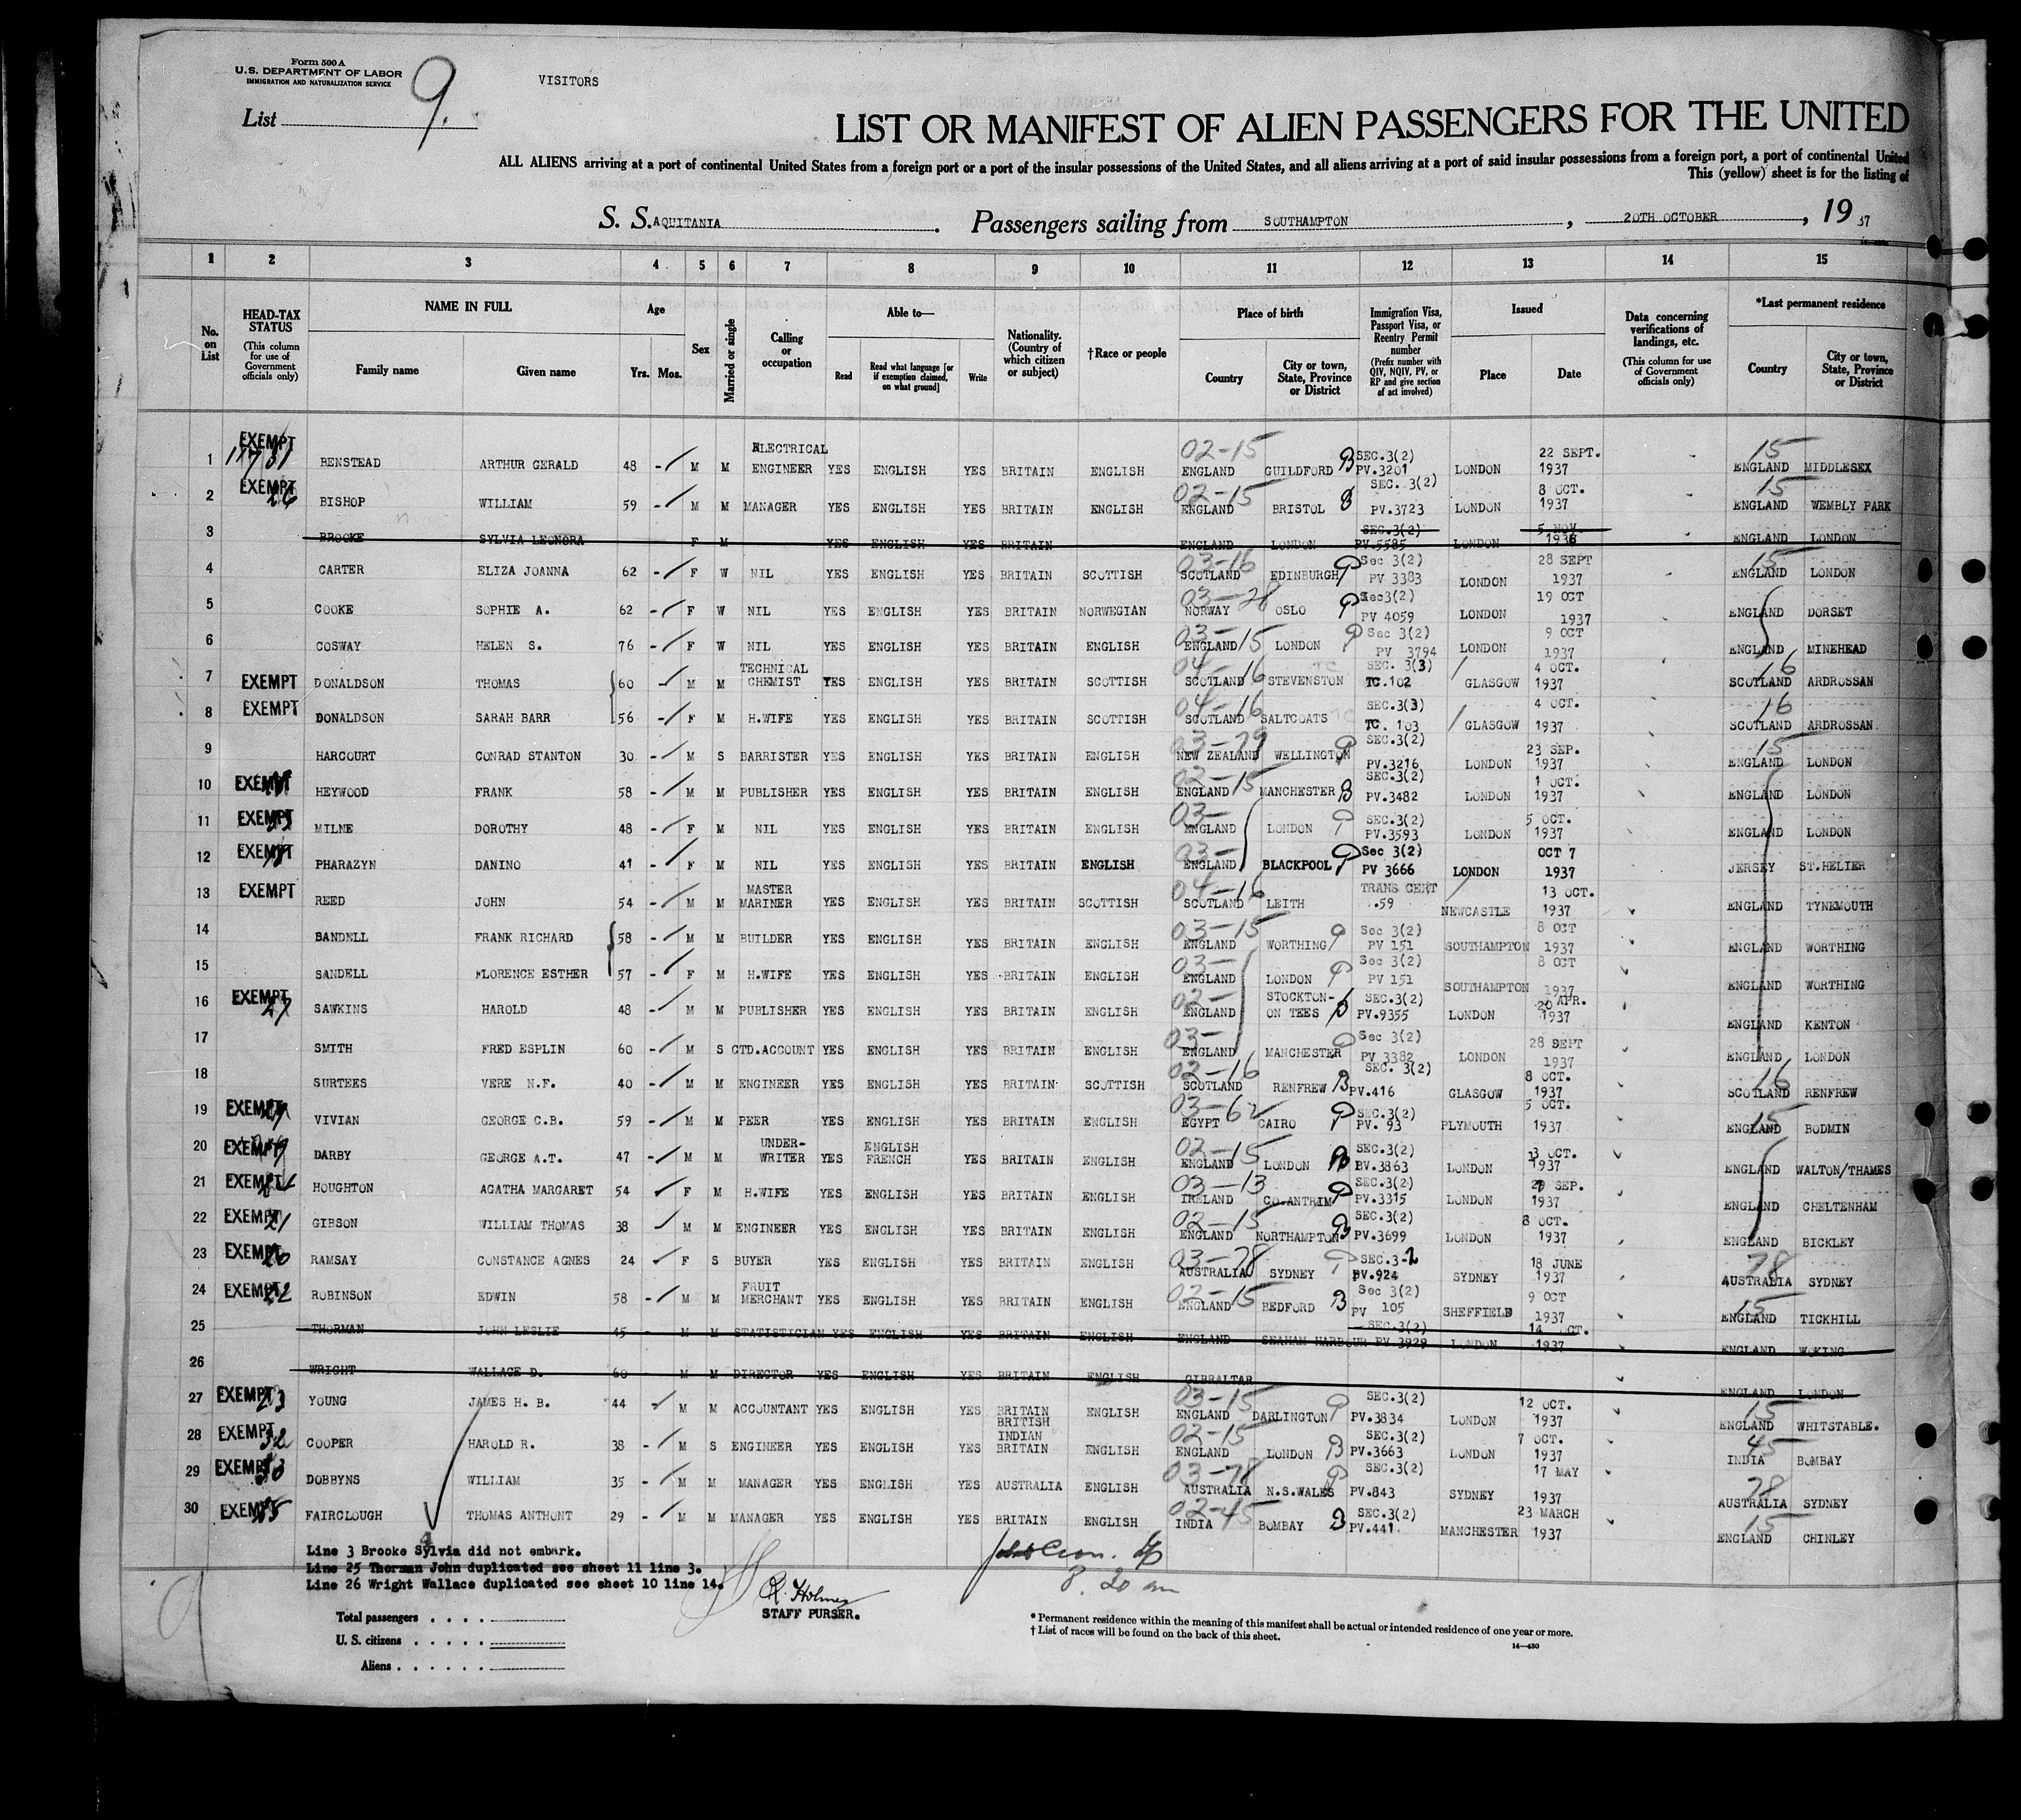 Form 500 A
U.S. DEPARTMENT OF LABOR
IMMIGRATION AND NATURALIZATION SERVICE
List 9.
VISITORS
LIST OR MANIFEST OF ALIEN PASSENGERS FOR THE UNITED
ALL ALIENS arriving at a port of continental United States from a foreign port or a port of the insular possessions of the United States, and all aliens arriving at a port of said insular possessions from a foreign port, a port of continental United
This (yellow) sheet is for the listing of
S. S. AQUITANIA. Passengers sailing from SOUTHAMPTON, 20TH OCTOBER, 19 37
1 2 3 4 5 6 7 8 9 10 11 12 13 14 15
No. on List
HEAD-TAX STATUS (This column for use of Government officials only)
NAME IN FULL
Family name Given name
Age
Yrs. Mos.
Sex
Married or single
Calling or occupation
Able to—
Read Read what language [or if exemption claimed, on what ground] Write
Nationality. (Country of which citizen or subject)
†Race or people
Place of birth
Country City or town, State, Province or District
Immigration Visa, Passport Visa, or Reentry Permit number (Prefix number with QIV, NQIV, PV, or RP and give section of act involved)
Issued
Place Date
Data concerning verifications of landings, etc. (This column for use of Government officials only)
*Last permanent residence
Country City or town, State, Province or District
1 EXEMPT BENSTEAD ARTHUR GERALD 48 - M M ELECTRICAL ENGINEER YES ENGLISH YES BRITAIN ENGLISH 02-15 ENGLAND GUILDFORD B SEC.3(2) PV.3201 LONDON 22 SEPT. 1937 15 ENGLAND MIDDLESEX
2 EXEMPT 26 BISHOP WILLIAM 59 - M M MANAGER YES ENGLISH YES BRITAIN ENGLISH 02-15 ENGLAND BRISTOL B SEC. 3(2) PV.3723 LONDON 8 OCT. 1937 15 ENGLAND WEMBLY PARK
3 BROOKE SYLVIA LEONORA F M YES ENGLISH YES BRITAIN ENGLAND LONDON SEC.3(2) PV.5585 LONDON 5 NOV 1936 ENGLAND LONDON
4 CARTER ELIZA JOANNA 62 - F W NIL YES ENGLISH YES BRITAIN SCOTTISH 03-16 SCOTLAND EDINBURGH P Sec 3(2) PV 3383 LONDON 28 SEPT 1937 15 ENGLAND LONDON
5 COOKE SOPHIE A. 62 - F W NIL YES ENGLISH YES BRITAIN NORWEGIAN 03-28 NORWAY OSLO P Sec3(2) PV 4059 LONDON 19 OCT 1937 ENGLAND DORSET
6 COSWAY HELEN S. 76 - F W NIL YES ENGLISH YES BRITAIN ENGLISH 03-15 ENGLAND LONDON P Sec 3(2) PV 3794 LONDON 9 OCT 1937 ENGLAND MINEHEAD
7 EXEMPT DONALDSON THOMAS 60 - M M TECHNICAL CHEMIST YES ENGLISH YES BRITAIN SCOTTISH 04-16 SCOTLAND STEVENSTON SEC. 3(3) TC.102 GLASGOW 4 OCT. 1937 16 SCOTLAND ARDROSSAN
8 EXEMPT DONALDSON SARAH BARR 56 - F M H.WIFE YES ENGLISH YES BRITAIN SCOTTISH 04-16 SCOTLAND SALTCOATS SEC.3(3) TC. 103 GLASGOW 4 OCT. 1937 16 SCOTLAND ARDROSSAN
9 HARCOURT CONRAD STANTON 30 - M S BARRISTER YES ENGLISH YES BRITAIN ENGLISH 03-79 NEW ZEALAND WELLINGTON P SEC.3(2) PV.3216 LONDON 23 SEP. 1937 15 ENGLAND LONDON
10 EXEMPT HEYWOOD FRANK 58 - M M PUBLISHER YES ENGLISH YES BRITAIN ENGLISH 02-15 ENGLAND MANCHESTER B SEC.3(2) PV.3482 LONDON 1 OCT. 1937 ENGLAND LONDON
11 EXEMPT MILNE DOROTHY 48 - F M NIL YES ENGLISH YES BRITAIN ENGLISH 03- ENGLAND LONDON P SEC.3(2) PV.3593 LONDON 5 OCT. 1937 ENGLAND LONDON
12 EXEMPT PHARAZYN DANINO 41 - F M NIL YES ENGLISH YES BRITAIN ENGLISH 03- ENGLAND BLACKPOOL P Sec 3(2) PV 3666 LONDON OCT 7 1937 JERSEY ST.HELIER
13 EXEMPT REED JOHN 54 - M M MASTER MARINER YES ENGLISH YES BRITAIN SCOTTISH 04-16 SCOTLAND LEITH TRANS CERT .59 NEWCASTLE 13 OCT. 1937 ENGLAND TYNEMOUTH
14 SANDELL FRANK RICHARD 58 - M M BUILDER YES ENGLISH YES BRITAIN ENGLISH 03-15 ENGLAND WORTHING P Sec 3(2) PV 151 SOUTHAMPTON 8 OCT 1937 ENGLAND WORTHING
15 SANDELL FLORENCE ESTHER 57 - F M H.WIFE YES ENGLISH YES BRITAIN ENGLISH 03- ENGLAND LONDON P Sec 3(2) PV 151 SOUTHAMPTON 8 OCT 1937 ENGLAND WORTHING
16 EXEMPT 27 SAWKINS HAROLD 48 - M M PUBLISHER YES ENGLISH YES BRITAIN ENGLISH 02- ENGLAND STOCKTON-ON TEES B SEC.3(2) PV.9355 LONDON 20 APR. 1937 ENGLAND KENTON
17 SMITH FRED ESPLIN 60 - M S CTD.ACCOUNT YES ENGLISH YES BRITAIN ENGLISH 03- ENGLAND MANCHESTER P Sec 3(2) PV 3382 LONDON 28 SEPT 1937 ENGLAND LONDON
18 SURTEES VERE N.F. 40 - M M ENGINEER YES ENGLISH YES BRITAIN SCOTTISH 02-16 SCOTLAND RENFREW B SEC. 3(2) PV.416 GLASGOW 8 OCT. 1937 16 SCOTLAND RENFREW
19 EXEMPT VIVIAN GEORGE C.B. 59 - M M PEER YES ENGLISH YES BRITAIN ENGLISH 03-62 EGYPT CAIRO P SEC.3(2) PV. 93 PLYMOUTH 5 OCT. 1937 15 ENGLAND BODMIN
20 EXEMPT DARBY GEORGE A.T. 47 - M M UNDER-WRITER YES ENGLISH FRENCH YES BRITAIN ENGLISH 02-15 ENGLAND LONDON B SEC.3(2) PV.3863 LONDON 13 OCT. 1937 ENGLAND WALTON/THAMES
21 EXEMPT HOUGHTON AGATHA MARGARET 54 F M H.WIFE YES ENGLISH YES BRITAIN ENGLISH 03-13 IRELAND CO.ANTRIM P SEC.3(2) PV.3315 LONDON SEP. 1937 ENGLAND CHELTENHAM
22 EXEMPT 21 GIBSON WILLIAM THOMAS 38 M M ENGINEER YES ENGLISH YES BRITAIN ENGLISH 02-15 ENGLAND NORTHAMPTON B SEC.3(2) PV.3699 LONDON 8 OCT. 1937 ENGLAND BICKLEY
23 EXEMPT 20 RAMSAY CONSTANCE AGNES 24 F S BUYER YES ENGLISH YES BRITAIN ENGLISH 03-78 AUSTRALIA SYDNEY P SEC.3-2 PV.924 SYDNEY 18 JUNE 1937 78 AUSTRALIA SYDNEY
24 EXEMPT 22 ROBINSON EDWIN 58 - M M FRUIT MERCHANT YES ENGLISH YES BRITAIN ENGLISH 02-15 ENGLAND BEDFORD B Sec 3(2) PV 105 SHEFFIELD 9 OCT 1937 15 ENGLAND TICKHILL
25 THORMAN JOHN LESLIE 45 - M M STATISTICIAN YES ENGLISH YES BRITAIN ENGLISH ENGLAND SEAHAM HARBOUR SEC.3(2) PV 3929 LONDON 14 OCT. 1937 ENGLAND WOKING
26 WRIGHT WALLACE D. 60 - M M DIRECTOR YES ENGLISH YES BRITAIN ENGLISH GIBRALTAR ENGLAND LONDON
27 EXEMPT 23 YOUNG JAMES H. B. 44 M M ACCOUNTANT YES ENGLISH YES BRITAIN ENGLISH 03-15 ENGLAND DARLINGTON P SEC.3(2) PV.3834 LONDON 12 OCT. 1937 15 ENGLAND WHITSTABLE.
28 EXEMPT 32 COOPER HAROLD R. 38 - M S ENGINEER YES ENGLISH YES BRITISH INDIAN BRITAIN ENGLISH 02-15 ENGLAND LONDON B SEC.3(2) PV.3663 LONDON 7 OCT. 1937 45 INDIA BOMBAY
29 EXEMPT 30 DOBBYNS WILLIAM 35 - M M MANAGER YES ENGLISH YES AUSTRALIA ENGLISH 03-78 AUSTRALIA N.S.WALES P SEC.3(2) PV.843 SYDNEY 17 MAY 1937 78 AUSTRALIA SYDNEY
30 EXEMPT FAIRCLOUGH THOMAS ANTHONT 29 - M M MANAGER YES ENGLISH YES BRITAIN ENGLISH 02-45 INDIA BOMBAY B SEC.3(2) PV.441. MANCHESTER 23 MARCH 1937 15 ENGLAND CHINLEY
Line 3 Brooke Sylvia did not embark.
Line 25 Thorman John duplicated see sheet 11 line 3.
Line 26 Wright Wallace duplicated see sheet 10 line 14.
R. Holmes
STAFF PURSER.
8.20 am
Total passengers . . . .
U. S. citizens . . . . .
Aliens . . . . . .
* Permanent residence within the meaning of this manifest shall be actual or intended residence of one year or more.
† List of races will be found on the back of this sheet.
14—430